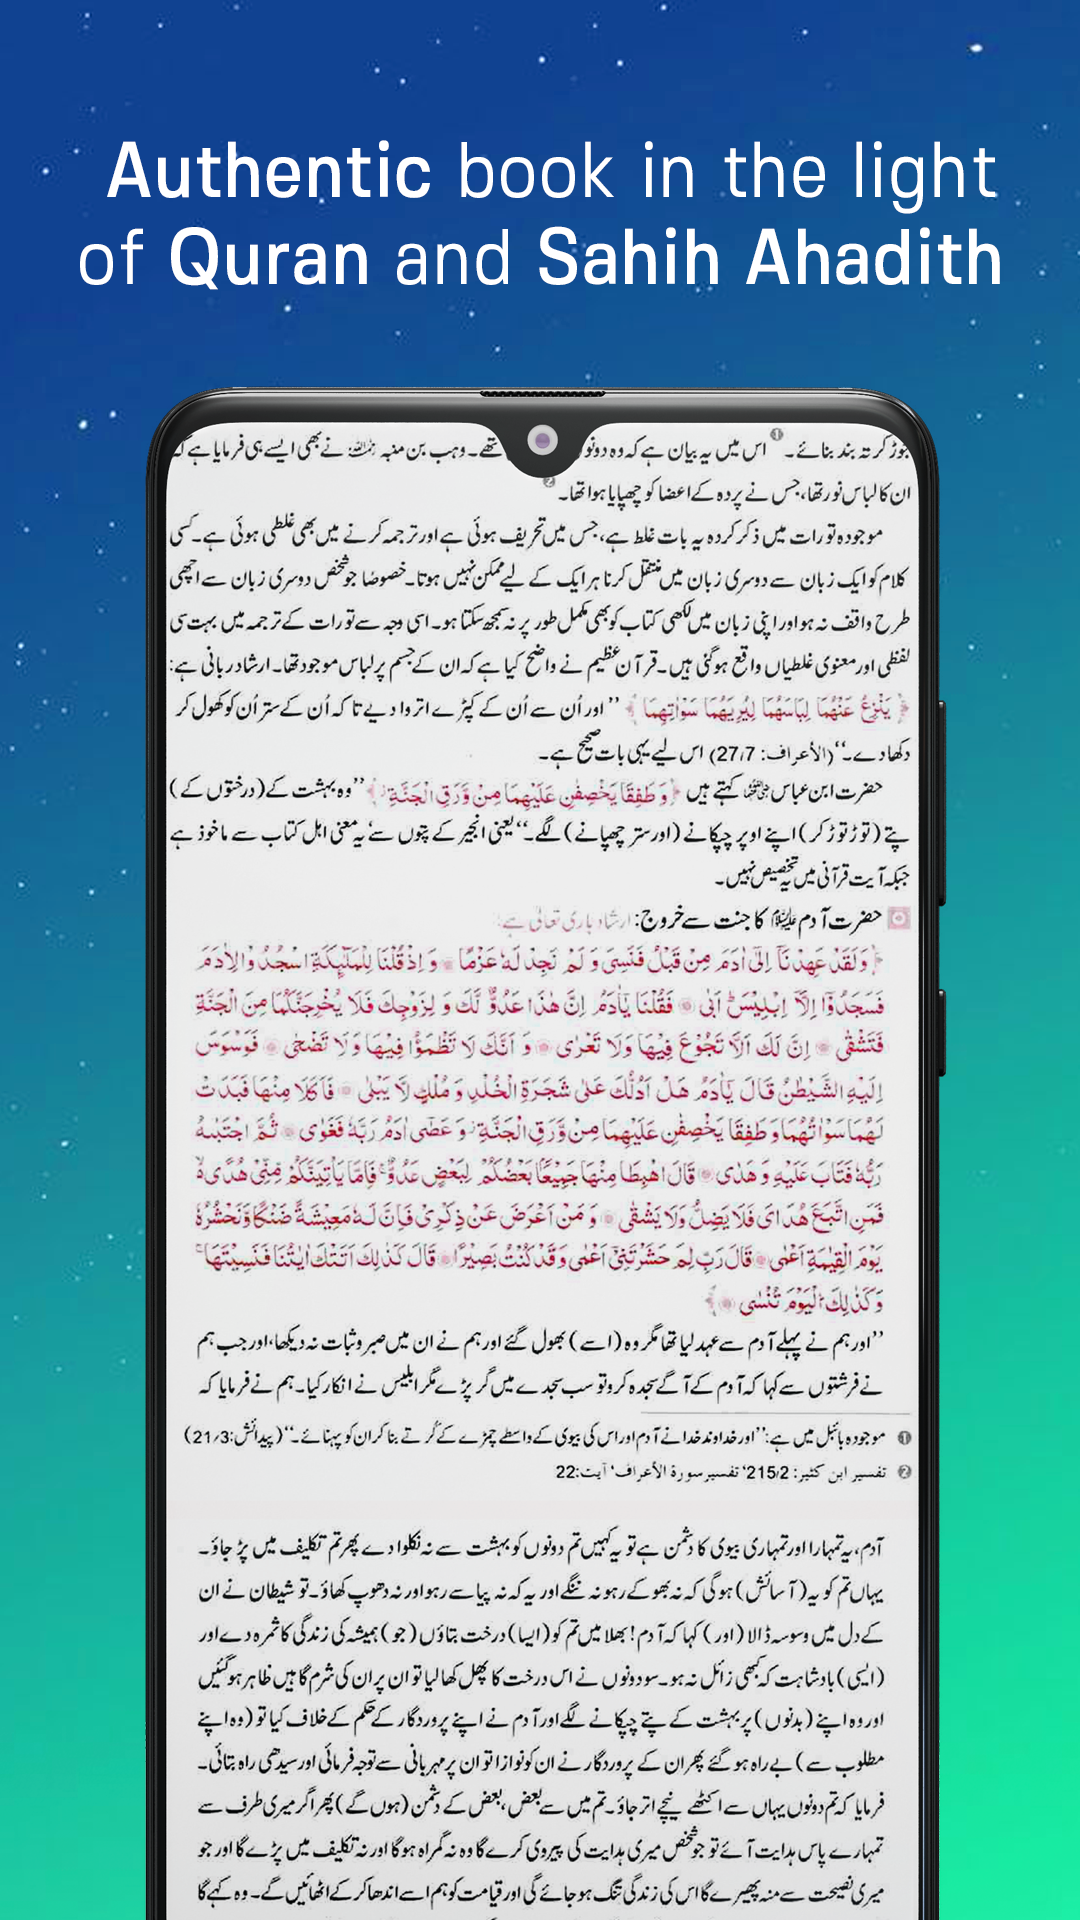 Authentic book in the light
of Quran and Sahih Ahadith
جوڑ کر تہ بند بنائے۔ ① اس میں یہ بیان ہے کہ وہ دونوں تھے۔ وہب بن منبہ رحمہ اللہ نے بھی ایسے ہی فرمایا ہے کہ
ان کا لباس نور تھا، جس نے پردہ کے اعضا کو چھپایا ہوا تھا۔ ②
موجودہ تورات میں ذکر کردہ یہ بات غلط ہے، جس میں تحریف ہوئی ہے اور ترجمہ کرنے میں بھی غلطی ہوئی ہے۔ کسی
کلام کو ایک زبان سے دوسری زبان میں منتقل کرنا ہر ایک کے لیے ممکن نہیں ہوتا۔ خصوصًا جو شخص دوسری زبان سے اچھی
طرح واقف نہ ہو اور اپنی زبان میں لکھی کتاب کو بھی مکمل طور پر نہ سمجھ سکتا ہو۔ اسی وجہ سے تورات کے ترجمہ میں بہت سی
لفظی اور معنوی غلطیاں واقع ہوگئی ہیں۔ قرآن عظیم نے واضح کیا ہے کہ ان کے جسم پر لباس موجود تھا۔ ارشاد ربانی ہے:
﴿ يَنْزِعُ عَنْهُمَا لِبَاسَهُمَا لِيُرِيَهُمَا سَوْاٰتِهِمَا ﴾ ’’ اور اُن سے اُن کے کپڑے اتروا دیے تاکہ اُن کے ستر اُن کو کھول کر
دکھا دے۔‘‘ (الأعراف: 27/7) اس لیے یہی بات صحیح ہے۔
حضرت ابن عباس رضی اللہ عنہما کہتے ہیں ﴿ وَطَفِقَا يَخْصِفٰنِ عَلَيْهِمَا مِنْ وَّرَقِ الْجَنَّةِ ﴾ ’’وہ بہشت کے (درختوں کے)
پتے (توڑ توڑ کر) اپنے اوپر چپکانے (اور ستر چھپانے) لگے۔‘‘ یعنی انجیر کے پتوں سے‘ یہ معنی اہل کتاب سے ماخوذ ہے
جبکہ آیت قرآنی میں یہ تخصیص نہیں۔
حضرت آدم علیہ السلام کا جنت سے خروج: ارشاد باری تعالی ہے:
﴿ وَلَقَدْ عَهِدْنَآ اِلٰٓى اٰدَمَ مِنْ قَبْلُ فَنَسِيَ وَلَمْ نَجِدْ لَهٗ عَزْمًا ۞ وَاِذْ قُلْنَا لِلْمَلٰٓئِكَةِ اسْجُدُوْا لِاٰدَمَ
فَسَجَدُوْٓا اِلَّآ اِبْلِيْسَ ؕ اَبٰى ۞ فَقُلْنَا يٰٓاٰدَمُ اِنَّ هٰذَا عَدُوٌّ لَّكَ وَلِزَوْجِكَ فَلَا يُخْرِجَنَّكُمَا مِنَ الْجَنَّةِ
فَتَشْقٰى ۞ اِنَّ لَكَ اَلَّا تَجُوْعَ فِيْهَا وَلَا تَعْرٰى ۞ وَاَنَّكَ لَا تَظْمَؤُا فِيْهَا وَلَا تَضْحٰى ۞ فَوَسْوَسَ
اِلَيْهِ الشَّيْطٰنُ قَالَ يٰٓاٰدَمُ هَلْ اَدُلُّكَ عَلٰى شَجَرَةِ الْخُلْدِ وَمُلْكٍ لَّا يَبْلٰى ۞ فَاَكَلَا مِنْهَا فَبَدَتْ
لَهُمَا سَوْاٰتُهُمَا وَطَفِقَا يَخْصِفٰنِ عَلَيْهِمَا مِنْ وَّرَقِ الْجَنَّةِ ز وَعَصٰٓى اٰدَمُ رَبَّهٗ فَغَوٰى ۞ ثُمَّ اجْتَبٰىهُ
رَبُّهٗ فَتَابَ عَلَيْهِ وَهَدٰى ۞ قَالَ اهْبِطَا مِنْهَا جَمِيْعًۢا بَعْضُكُمْ لِبَعْضٍ عَدُوٌّ ۚ فَاِمَّا يَاْتِيَنَّكُمْ مِّنِّيْ هُدًى ۙ
فَمَنِ اتَّبَعَ هُدَايَ فَلَا يَضِلُّ وَلَا يَشْقٰى ۞ وَمَنْ اَعْرَضَ عَنْ ذِكْرِيْ فَاِنَّ لَهٗ مَعِيْشَةً ضَنْكًا وَّنَحْشُرُهٗ
يَوْمَ الْقِيٰمَةِ اَعْمٰى ۞ قَالَ رَبِّ لِمَ حَشَرْتَنِيْٓ اَعْمٰى وَقَدْ كُنْتُ بَصِيْرًا ۞ قَالَ كَذٰلِكَ اَتَتْكَ اٰيٰتُنَا فَنَسِيْتَهَا ۚ
وَكَذٰلِكَ الْيَوْمَ تُنْسٰى ۞ ﴾
’’اور ہم نے پہلے آدم سے عہد لیا تھا مگر وہ (اسے) بھول گئے اور ہم نے ان میں صبر و ثبات نہ دیکھا، اور جب ہم
نے فرشتوں سے کہا کہ آدم کے آگے سجدہ کرو تو سب سجدے میں گر پڑے مگر ابلیس نے انکار کیا۔ ہم نے فرمایا کہ
① موجودہ بائبل میں ہے: ’’اور خداوند خدا نے آدم اور اس کی بیوی کے واسطے چمڑے کے کُرتے بنا کر ان کو پہنائے۔‘‘ (پیدائش: 21/3)
② تفسیر ابن کثیر: 215/2‘ تفسیر سورة الأعراف‘ آیت: 22
آدم، یہ تمہارا اور تمہاری بیوی کا دشمن ہے تو یہ کہیں تم دونوں کو بہشت سے نہ نکلوا دے پھر تم تکلیف میں پڑ جاؤ۔
یہاں تم کو یہ (آسائش) ہوگی کہ نہ بھوکے رہو نہ ننگے اور یہ کہ نہ پیاسے رہو اور نہ دھوپ کھاؤ۔ تو شیطان نے ان
کے دل میں وسوسہ ڈالا (اور) کہا کہ آدم! بھلا میں تم کو (ایسا) درخت بتاؤں (جو) ہمیشہ کی زندگی کا ثمرہ دے اور
(ایسی) بادشاہت کہ کبھی زائل نہ ہو۔ سو دونوں نے اس درخت کا پھل کھا لیا تو ان پر ان کی شرم گاہیں ظاہر ہوگئیں
اور وہ اپنے (بدنوں) پر بہشت کے پتے چپکانے لگے اور آدم نے اپنے پروردگار کے حکم کے خلاف کیا تو (وہ اپنے
مطلوب سے) بے راہ ہو گئے پھر ان کے پروردگار نے ان کو نوازا تو ان پر مہربانی سے توجہ فرمائی اور سیدھی راہ بتائی۔
فرمایا کہ تم دونوں یہاں سے اکٹھے نیچے اتر جاؤ۔ تم میں سے بعض، بعض کے دشمن (ہوں گے) پھر اگر میری طرف سے
تمہارے پاس ہدایت آئے تو جو شخص میری ہدایت کی پیروی کرے گا وہ نہ گمراہ ہوگا اور نہ تکلیف میں پڑے گا اور جو
میری نصیحت سے منہ پھیرے گا اس کی زندگی تنگ ہو جائے گی اور قیامت کو ہم اسے اندھا کر کے اٹھائیں گے۔ وہ کہے گا